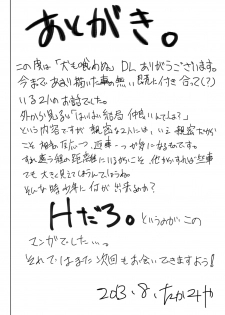 あとがき。
この度は「犬も喰わぬ」DLありがとうございます。
今まであまり描いた事の無い既に付き合って(?)
いる2人のお話でした。
外から見ると「はいはい結局仲良いんでしょ?」
という内容ですが親密な2人には、いえ親密だから
こそ相手の反応一つ、返事一つが気になるものです。
すれ違う程の距離にいるからこそ、他からすれば些事
でも大きく見えてしまうんでしょうね。
そんな時少年に何が出来るか?
Hだろ。というのがこの
マンガでした…。
それではまた次回もお会いできますよう!
2013.8.たかみや